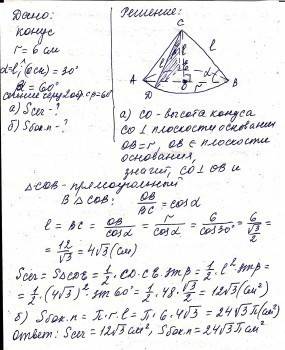 Дано:
конус
r = 6 см
α = l,^(осн.) = 30°
= 60°
а) Sсеч - ?
б) Sбок.п - ?
Решение:
C
l
l
A
D
O
r
α
B
а) CO - высота конуса
CO ⊥ плоскости основания
OB = r, OB ∈ плоскости
основания,
значит, CO ⊥ OB и
△COB - прямоугольный
В △COB: OB/BC = cos α
l = BC = OB/cos α = r/cos α = 6/cos 30° = 6/(√3/2) =
= 12/√3 = 4√3 (см)
Sсеч = S△DCB = 1/2 · CD · CB · sin β = 1/2 · l² · sin β =
= 1/2 · (4√3)² · sin 60° = 1/2 · 48 · √3/2 = 12√3 (см²)
б) Sбок.п = π · r · l = π · 6 · 4√3 = 24√3 π (см²)
Ответ: Sсеч = 12√3 см², Sбок.п = 24√3 π см²